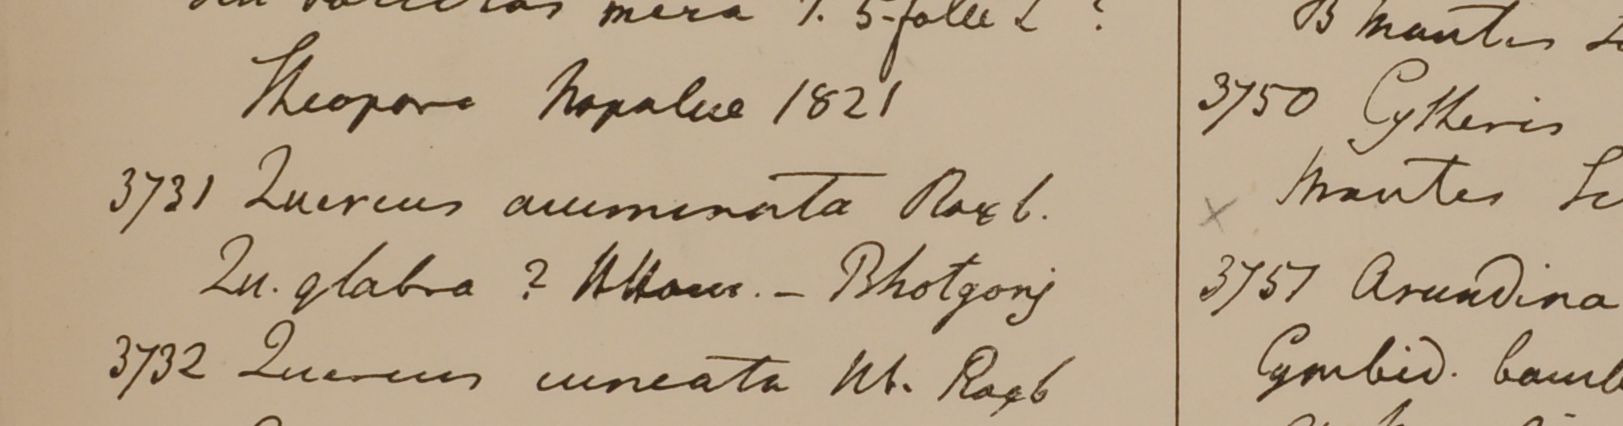 mera 1. 5-foliae L ?
Theopora Napalue 1821
3731 Quercus acuminata Roxb.
Qu. glabra ? – Bhotgong
3732 Quercus cuneata Hb. Roxb
B Mantis
3750 Cytheris
Mantes
x
3751 Arundina
Cymbid.